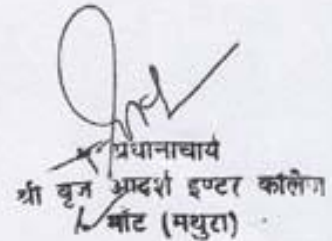 प्रधानाचार्य
श्री बृज आदर्श इण्टर कॉलेज
माँट (मथुरा)